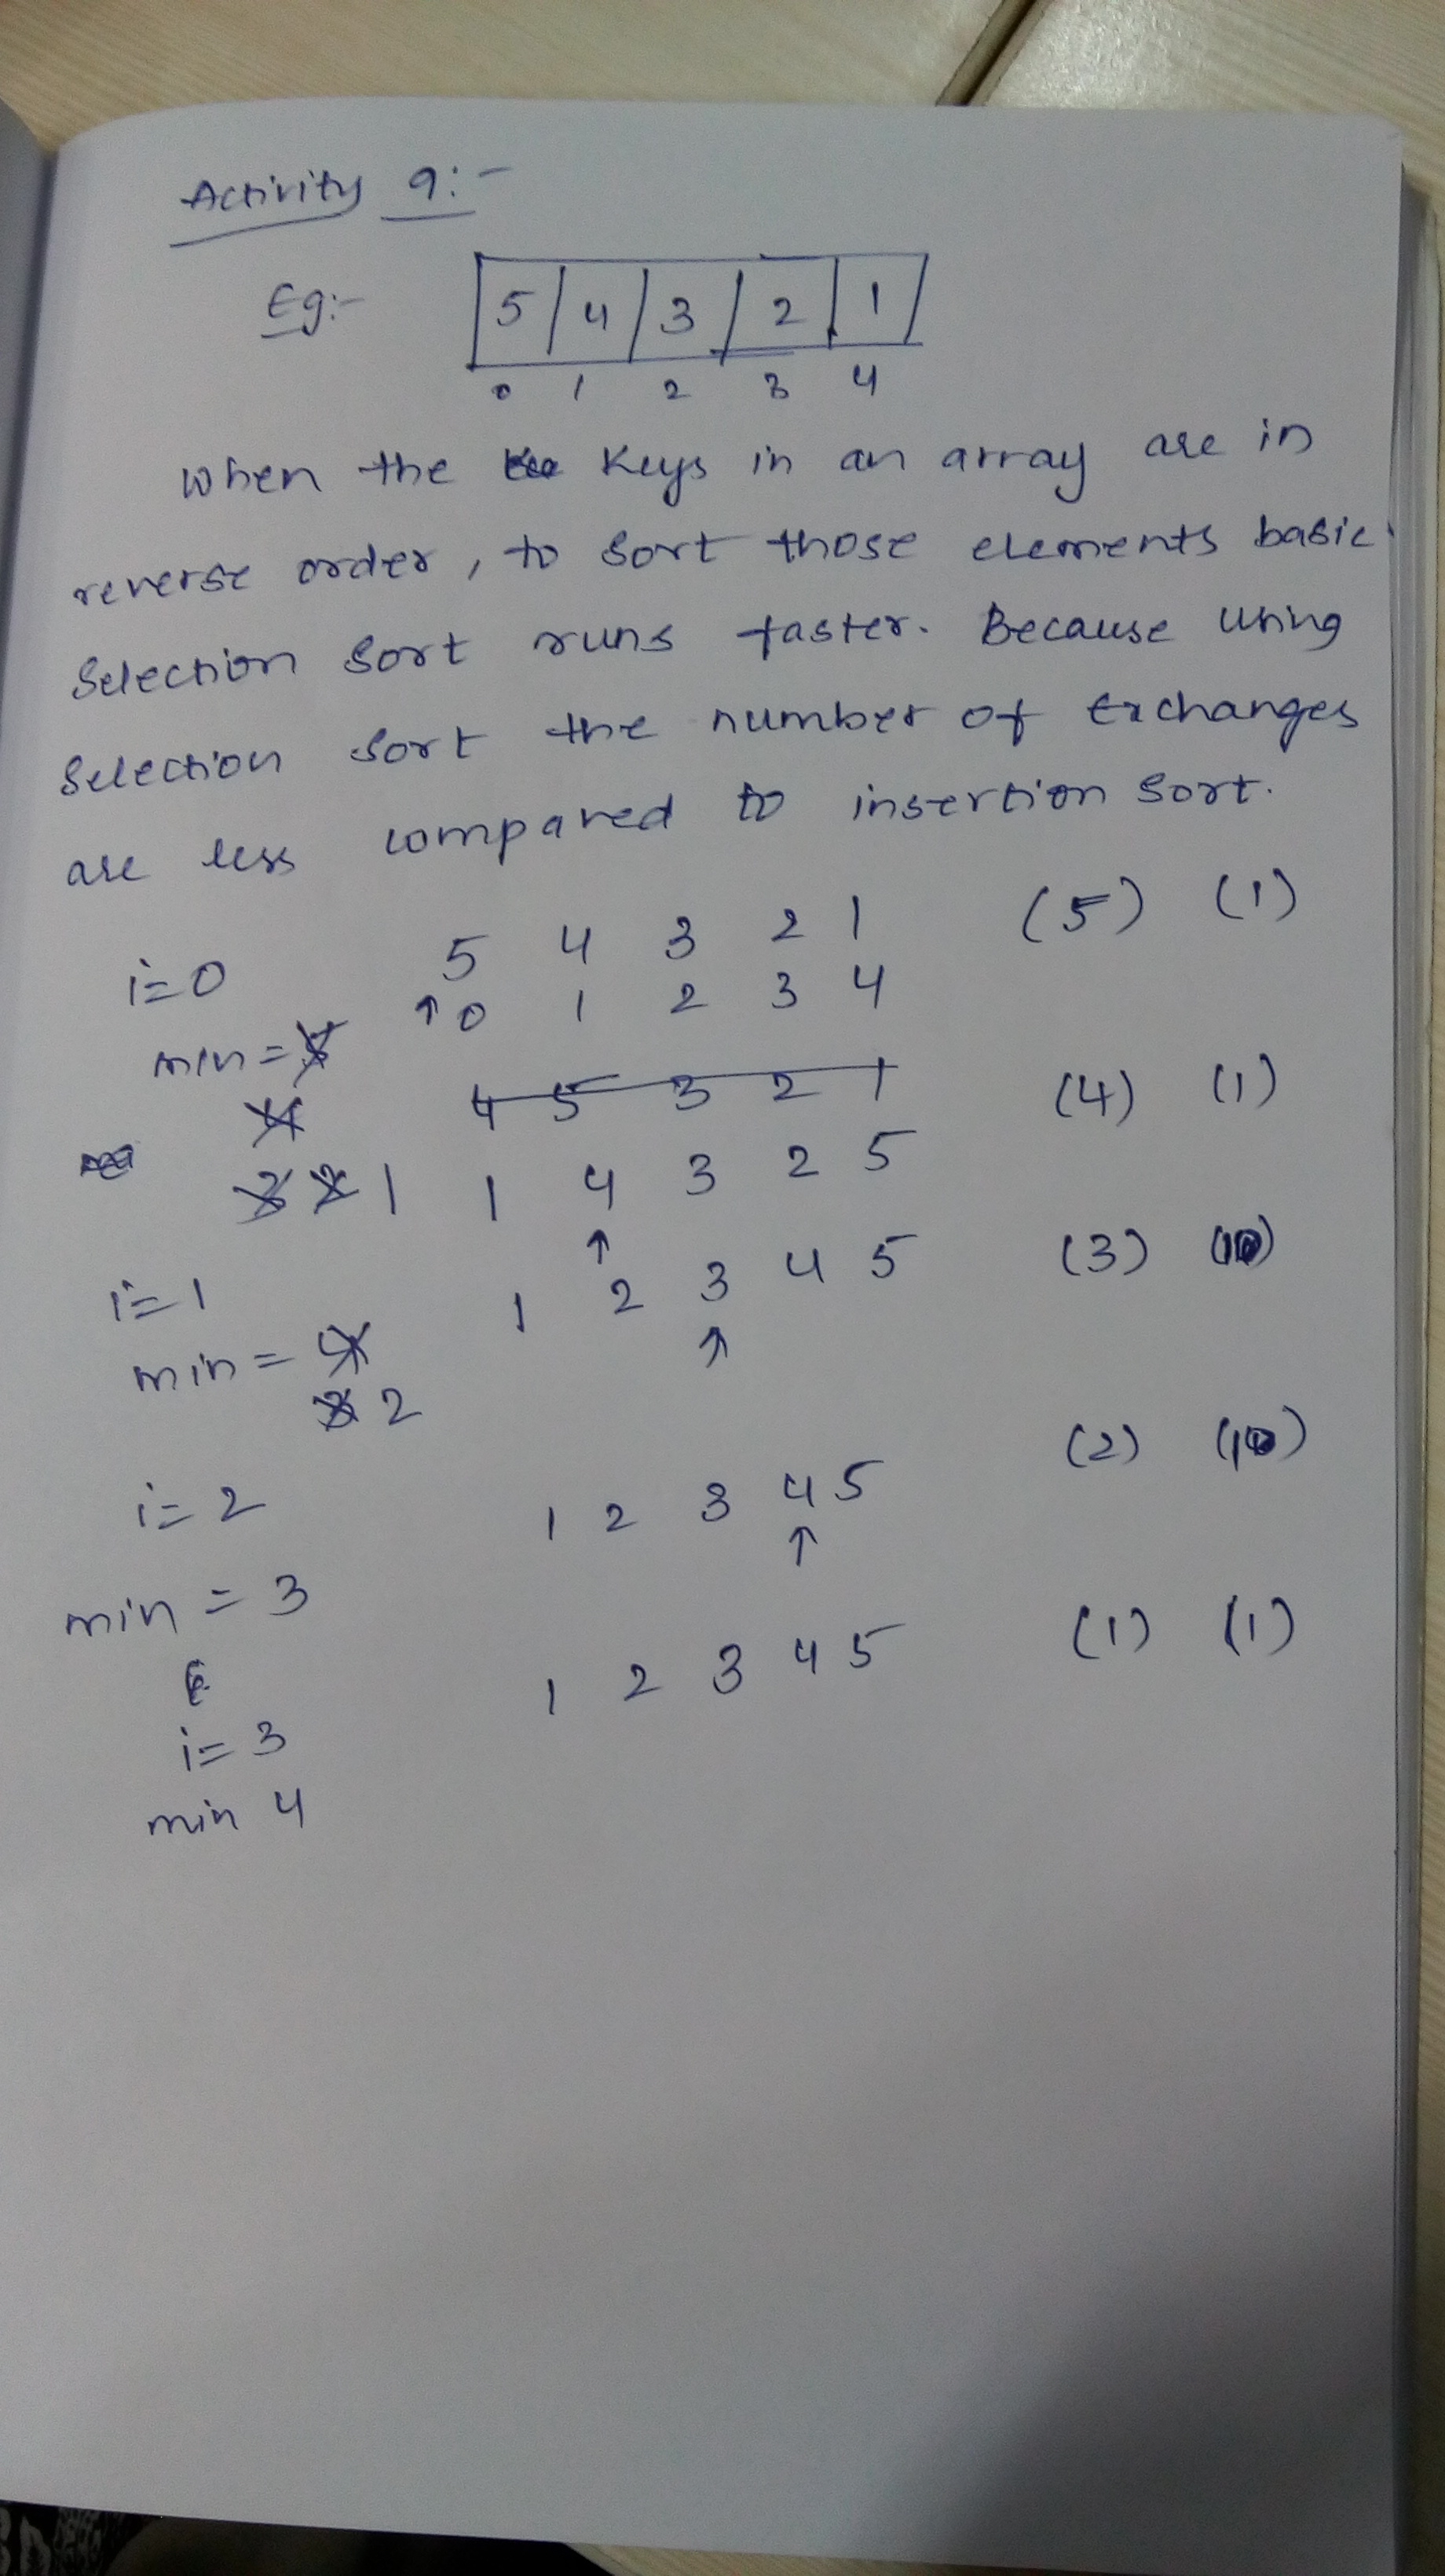 Activity 9:-
Eg:- 5 4 3 2 1
0 1 2 3 4
When the Keys in an array are in
reverse order, to sort those elements basic
Selection Sort runs faster. Because using
Selection Sort the number of Exchanges
are less compared to insertion Sort.
i=0 5 4 3 2 1 (5) (1)
↑ 0 1 2 3 4
min = 5
4 4 5 3 2 1 (4) (1)
3 2 1 1 4 3 2 5
↑
i=1 1 2 3 4 5 (3) (1)
min = 4 ↑
3 2
i=2 1 2 3 4 5 (2) (1)
↑
min = 3
1 2 3 4 5 (1) (1)
i=3
min 4